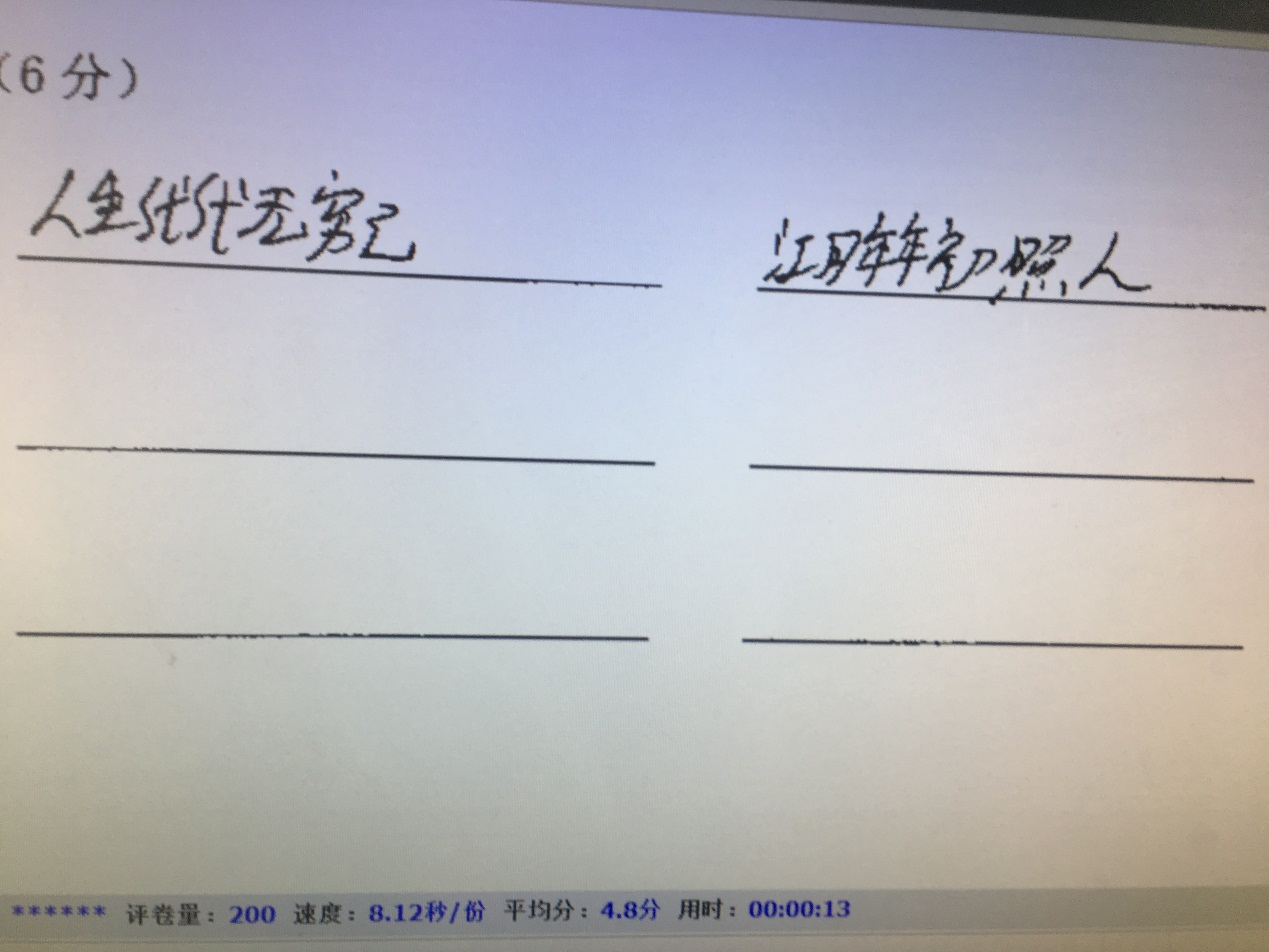 （6 分）
人生代代无穷已 江月年年初照人
****** 评卷量：200 速度：8.12秒/份 平均分：4.8分 用时：00:00:13